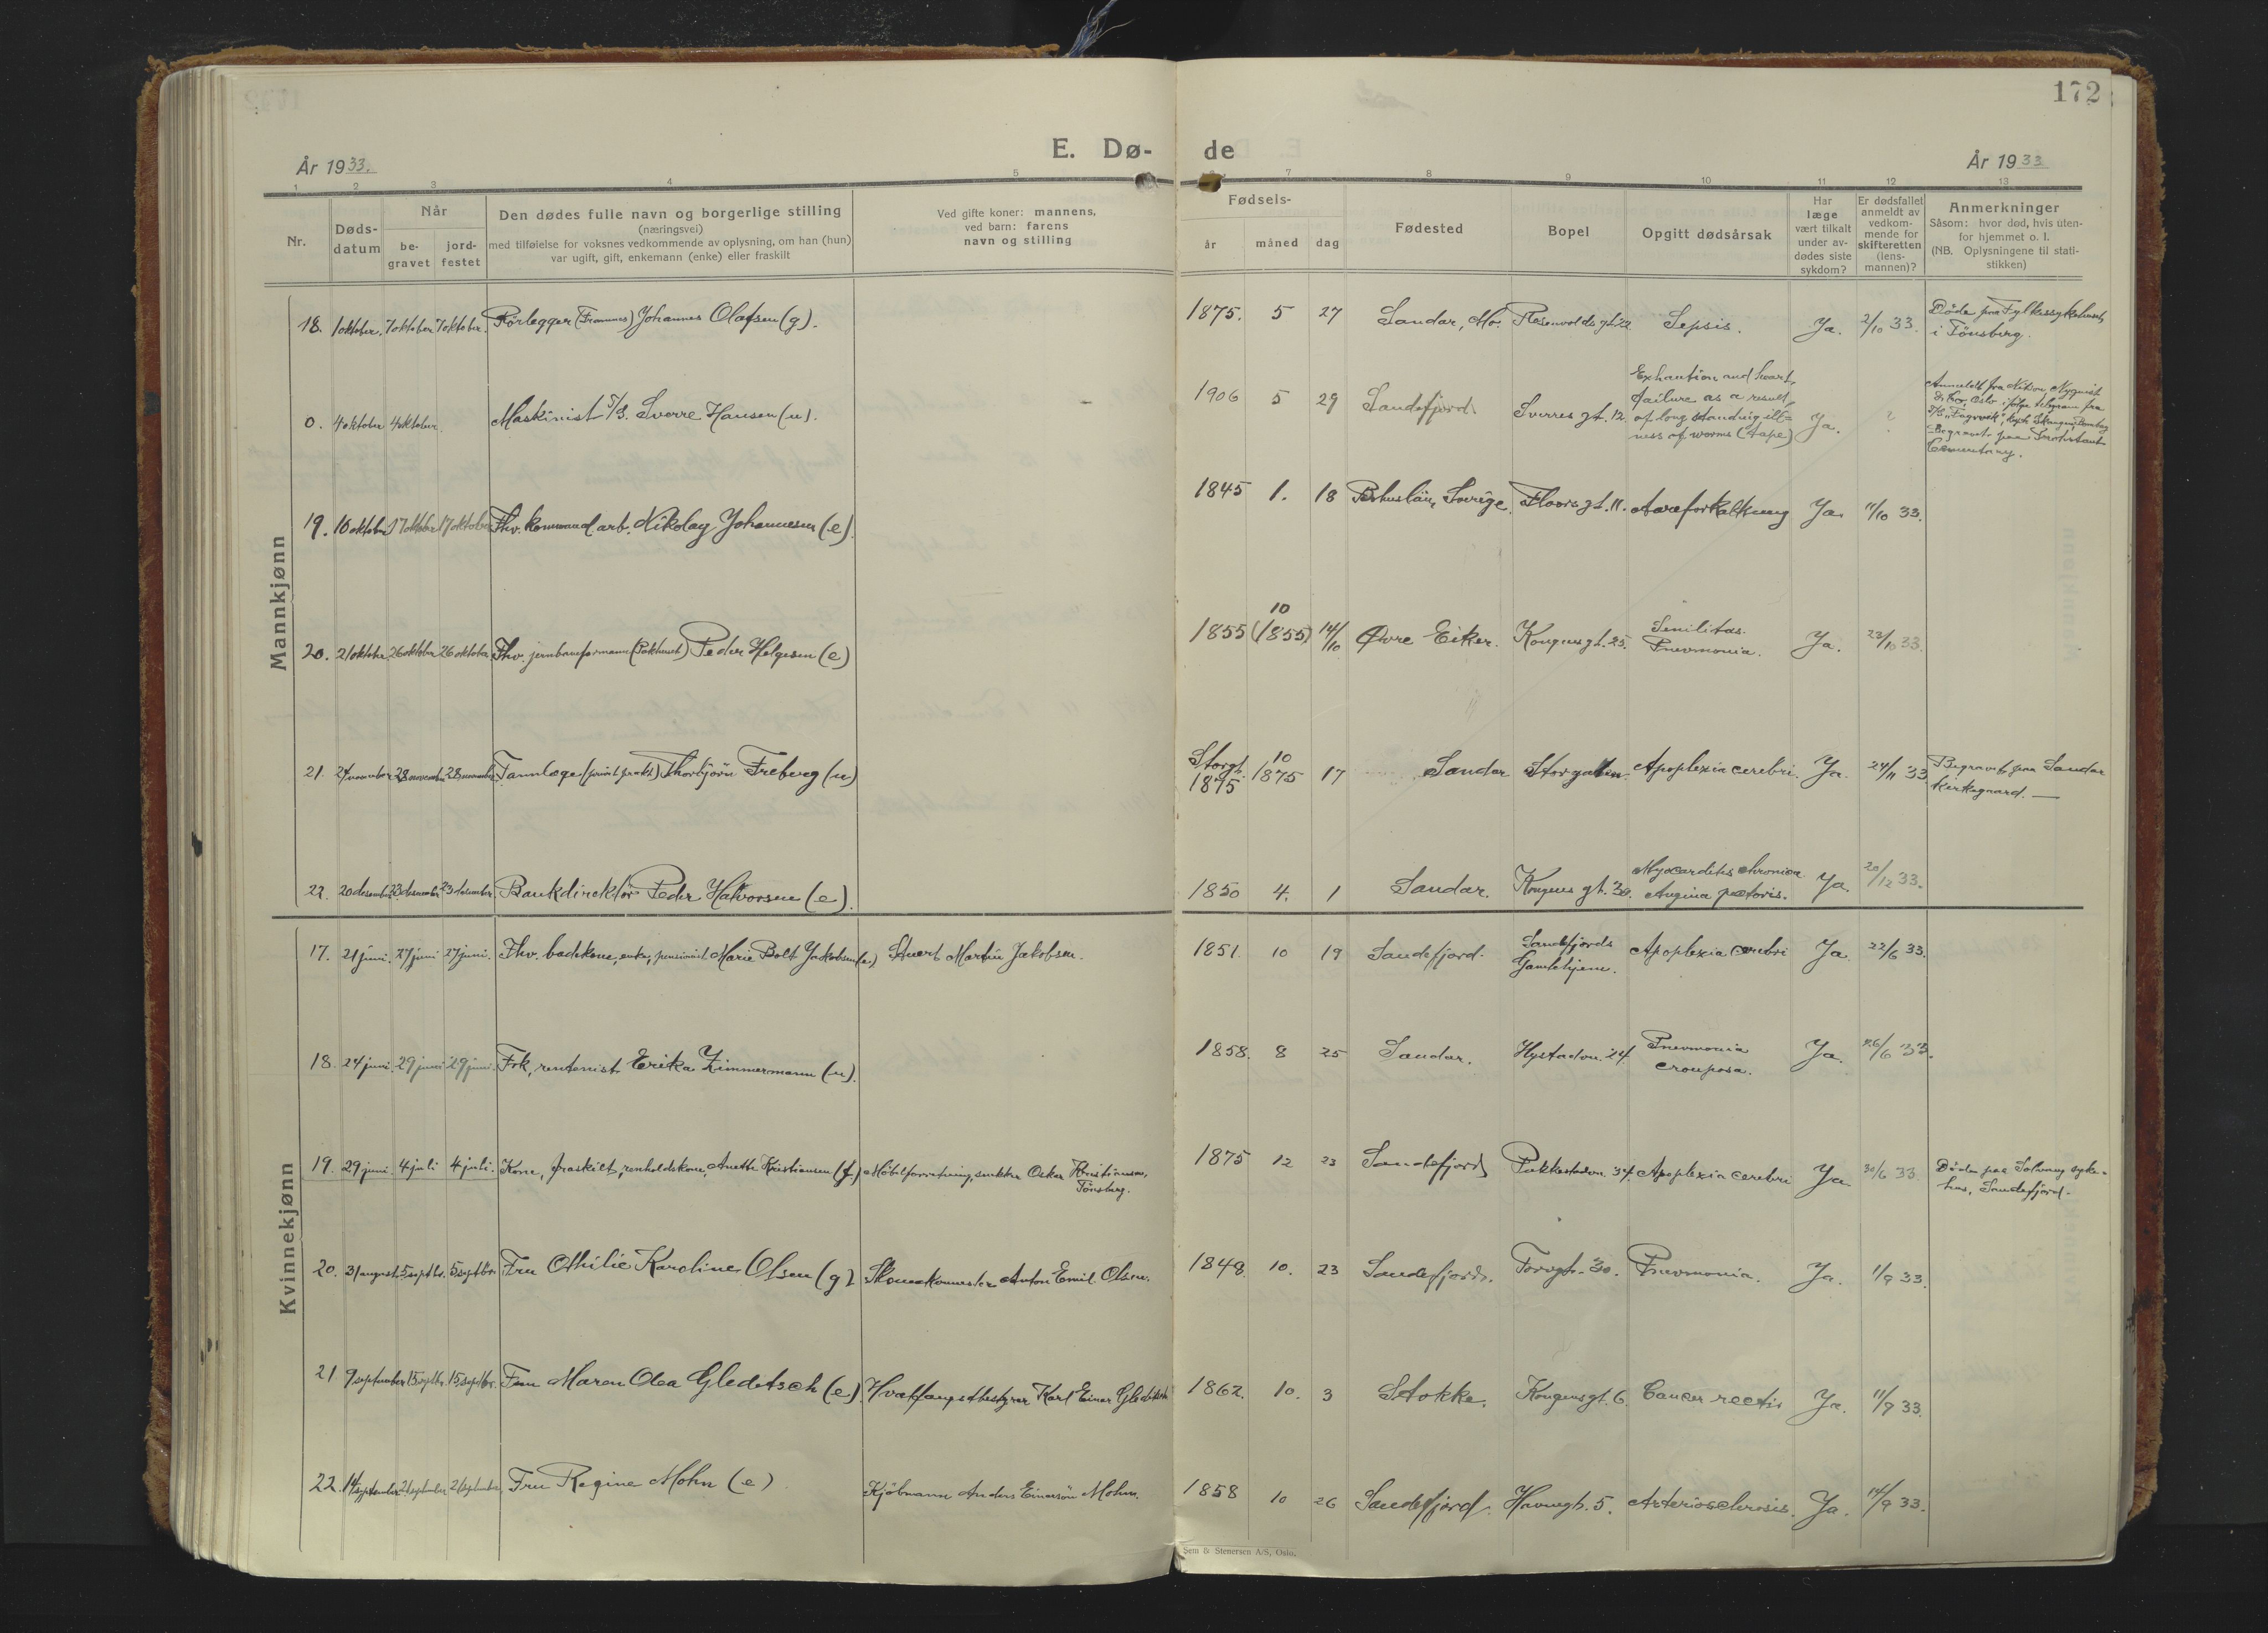 172
E. Dø- de
År 1933.
År 1933
1 2 3 4 5 7 8 9 10 11 12 13
Nr.
Døds-
datum
Når
be-
gravet
jord-
festet
Den dødes fulle navn og borgerlige stilling
(næringsvei)
med tilføielse for voksnes vedkommende av oplysning, om han (hun)
var ugift, gift, enkemann (enke) eller fraskilt
Ved gifte koner: mannens,
ved barn: farens
navn og stilling
Fødsels-
år måned dag
Fødested
Bopel
Opgitt dødsårsak
Har
læge
vært tilkalt
under av-
dødes siste
sykdom?
Er dødsfallet
anmeldt av
vedkom-
mende for
skifteretten
(lens-
mannen)?
Anmerkninger
Såsom: hvor død, hvis uten-
for hjemmet o. l.
(NB. Oplysningene til stati-
stikken)
Mannkjønn
18. 1 oktober. 7 oktober 7 oktober. Rörlegger (Framnes) Johannes Olafsen (g). 1875. 5 27 Sandar, Mo. Rosenvoldsgt. 22 Sepsis. Ja. 2/10 33. Döde paa Fylkessykehuset
i Tönsberg.
0. 4 oktober 4 oktober. Maskinist T/S. Sverre Hansen (u). 1906 5 29 Sandefjord. Sverres gt. 12. Exhaution and heart
failure as a result
of long standing ill=
ness of worms (tape) Ja. ?
Anmeldt fra
Oslo ifølge telegram fra
Begravet paa
19. 10 oktober 17 oktober 17 oktober Fhv. kommunal arb. Nikolay Johannesen (e). 1845 1. 18 Bohuslän, Sverige. Floors gt. 11. Aareforkalkning Ja. 11/10 33.
20. 21 oktober 26 oktober 26 oktober. Fhv. jernbaneformann (Pakhuset) Peder Helgesen (e) 1855 10 (1855) 14/10 Øvre Eiker. Kongensgt. 25. Senilitas.
Pnevmonia. Ja. 23/10 33.
21. 24 november 28 november 28 november Tannlæge (privat prakt.) Thorbjörn Freberg (u) Storgt.
1875 10
1875 17 Sandar Storgaten. Apoplexia cerebri. Ja. 24/11 33 Begravet paa Sandar
kirkegaard. —
22. 20 desember 23 desember 23 desember Bankdirektör Peder Halvorsen (e). 1850 4. 1 Sandar. Kongens gt. 30. Myocarditis chronica
Angina pectoris. Ja. 20/12 33.
Kvinnekjønn
17. 21 juni. 27 juni 27 juni. Fhv. badekone, enke, pensionist Marie Bolt Jakobsen (e) Stuert Martin Jakobsen. 1851. 10 19 Sandefjord. Sandefjords
Gamlehjem. Apoplexia cerebri Ja. 22/6 33.
18. 24 juni. 29 juni 29 juni. Frk, rentenist Erika Zimmermann (u). 1858. 8 25 Sandar. Hystadvn. 24. Pnevmonia
crouposa. Ja. 26/6 33.
19. 29 juni 4 juli 4 juli. Kone, fraskilt, renholdskone, Anette Kristiansen (f.) Möbelforretning, snekker Oskar Kristiansen,
Tönsberg. 1875 12 23 Sandefjord Pukkestadvn. 34. Apoplexia cerebri Ja 30/6 33. Döde paa Solvang syke-
hus, Sandefjord.
20. 31 august 5 septbr. 5 septbr. Fru Othilie Karoline Olsen (g) Skomakermester Anton Emil Olsen. 1849. 10. 23 Sandefjord. Torvgt. 30. Pnevmonia. Ja. 1/9 33.
21. 9 september 15 septbr. 15 septbr. Fru Maren Olea Gleditsch (e). Hvalfangstbestyrer Karl Einar Gleditsch 1862. 10. 3 Stokke. Kongensgt. 6. Cancer recti Ja. 11/9 33.
22. 14 september 21 september 21 september. Fru Regine Mohn (e) Kjöbmann Anders Einersön Mohn. 1858 10 26 Sandefjord. Havnegt. 5. Arteriosclerosis. Ja. 14/9 33.
Sem & Stenersen A/S, Oslo.